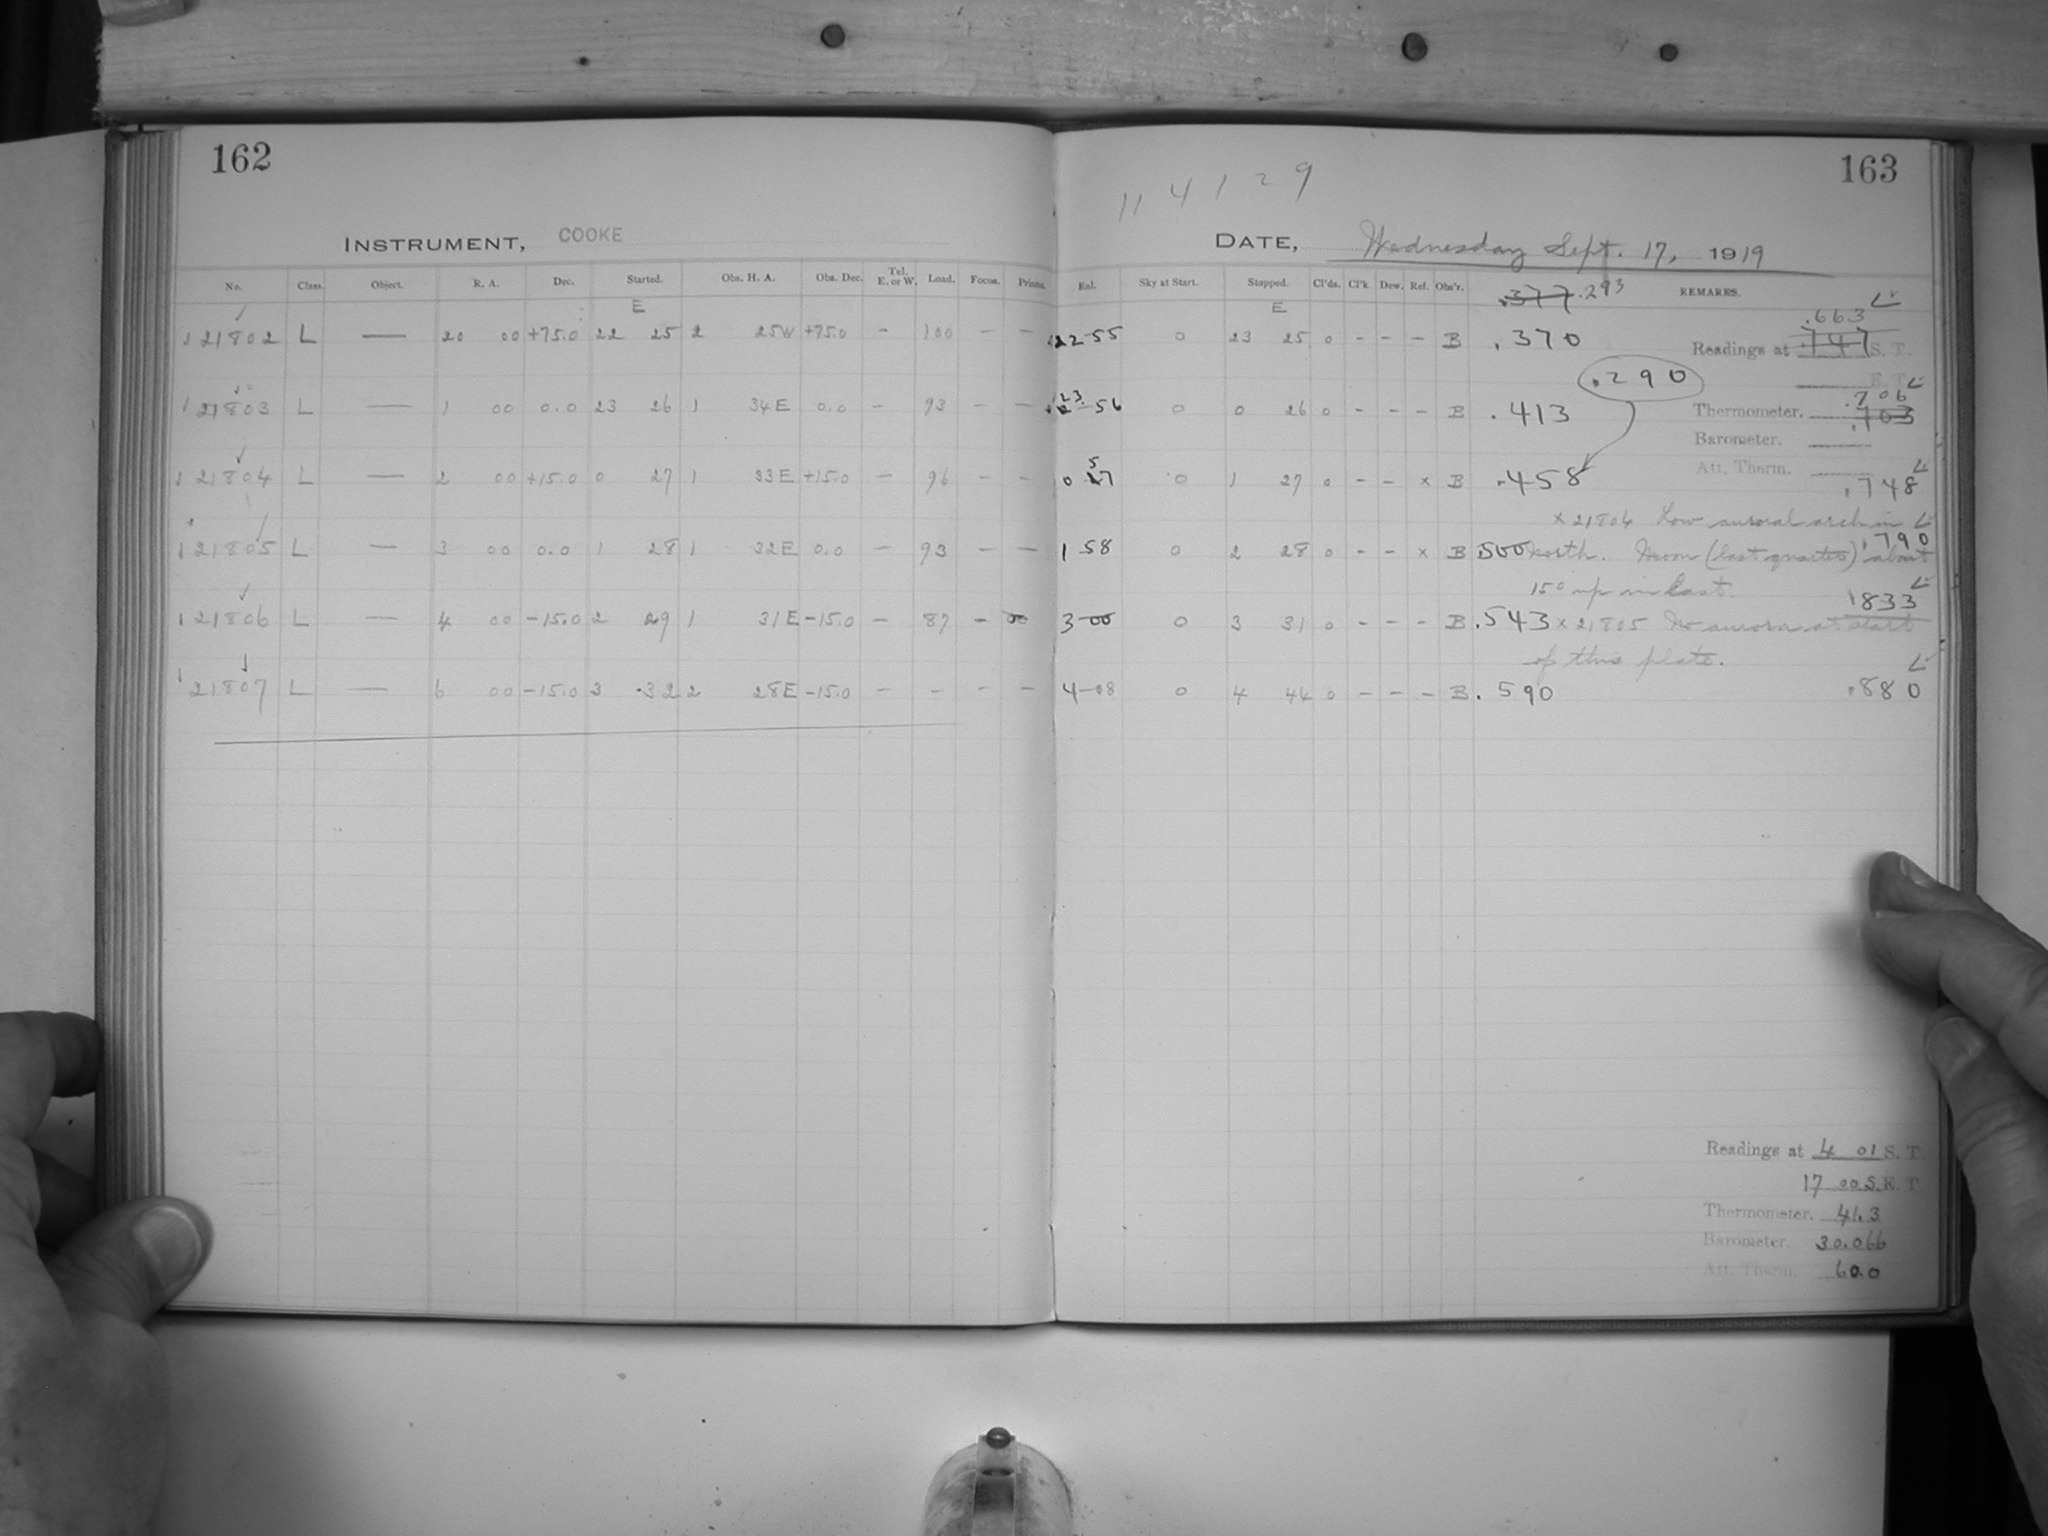 162
INSTRUMENT, COOKE
No. Class. Object. R. A. Dec. Started. Obs. H. A. Obs. Dec. Tel. E. or W. Load. Focus. Prisms.
E
21802 L — 20 00 +75.0 22 25 2 25W +75.0 - 100 - -
21803 L — 1 00 0.0 23 26 1 34E 0.0 - 93 - -
21804 L — 2 00 +15.0 0 27 1 33E +15.0 - 96 - -
21805 L — 3 00 0.0 1 28 1 32E 0.0 - 93 - -
21806 L — 4 00 -15.0 2 29 1 31E -15.0 - 87 -
21807 L — 6 00 -15.0 3 32 2 28E -15.0 - - - -
163
11 4 1 2 9
DATE, Wednesday Sept. 17, 1919
Sky at Start. Stopped. Cl'ds. Cl'k. Dew. Ref. Obs'r. REMARKS.
E .377 .293
.663
22-55 0 23 25 0 - - - B .370
Readings at .747 S. T.
.290
E. T.
.706
23-56 0 0 26 0 - - - B .413
Thermometer. .703
Barometer.
Att. Therm.
0 57 0 1 27 0 - - x B .458 .748
x 21804 Low auroral arch in
.790
1 58 0 2 28 0 - - x B 500 north. Moon (last quarter) about
15° up in East.
.833
3-00 0 3 31 0 - - - B .543 x 21805 No aurora at start
of this plate.
4-08 0 4 44 0 - - - B .590 .880
Readings at 4 01 S. T.
17 00 S. E. T.
Thermometer. 41.3
Barometer. 30.066
Att. Therm. 60.0